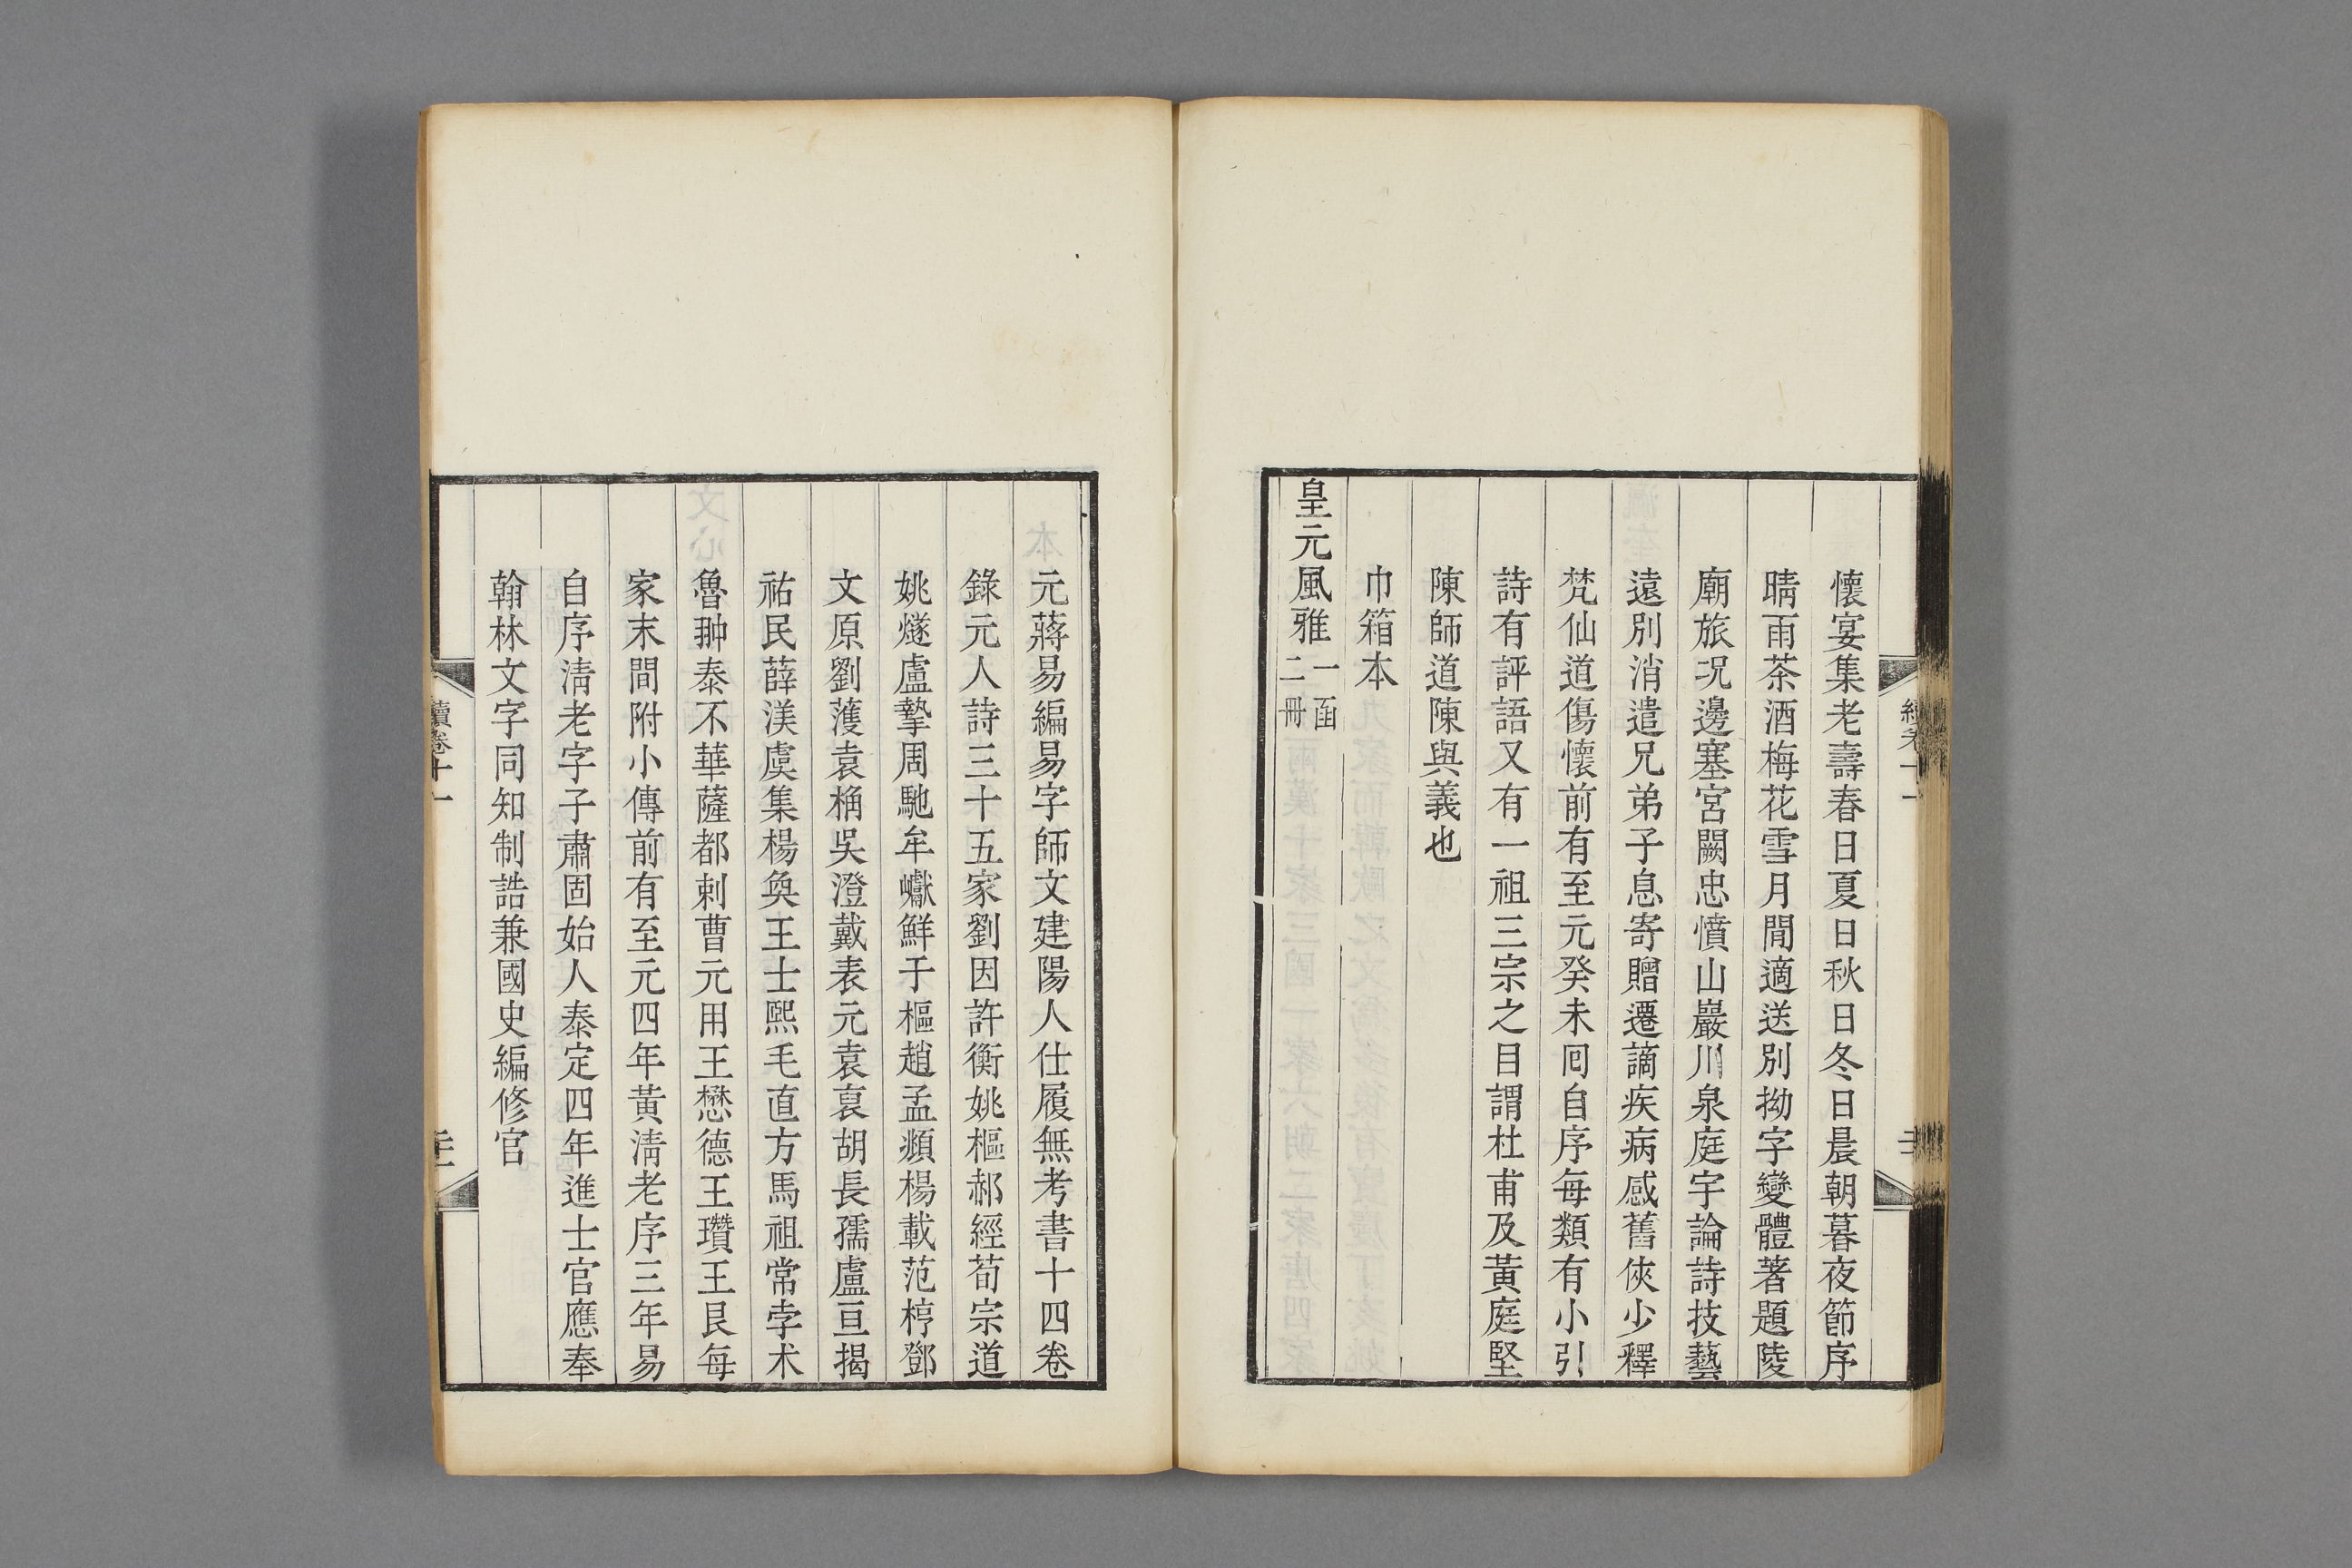 懷宴集老壽春日夏日秋日冬日晨朝暮夜節序
晴雨茶酒梅花雪月閒適送別拗字變體著題陵
廟旅況邊塞宮闕忠憤山巖川泉庭宇論詩技藝
遠別消遣兄弟子息寄贈遷謫疾病感舊俠少釋
梵仙道傷懷前有至元癸未囘自序每類有小引
詩有評語又有一祖三宗之目謂杜甫及黃庭堅
陳師道陳與義也
巾箱本
皇元風雅一函二冊
元蔣易編易字師文建陽人仕履無考書十四卷
錄元人詩三十五家劉因許衡姚樞郝經荀宗道
姚燧盧摯周馳牟巘鮮于樞趙孟頫楊載范梈鄧
文原劉濩袁桷吳澄戴表元袁裒胡長孺盧亘揭
祐民薛漢虞集楊奐王士熙毛直方馬祖常孛术
魯翀泰不華薩都剌曹元用王懋德王瓚王艮每
家末間附小傳前有至元四年黃清老序三年易
自序清老字子肅固始人泰定四年進士官應奉
翰林文字同知制誥兼國史編修官
續卷十一